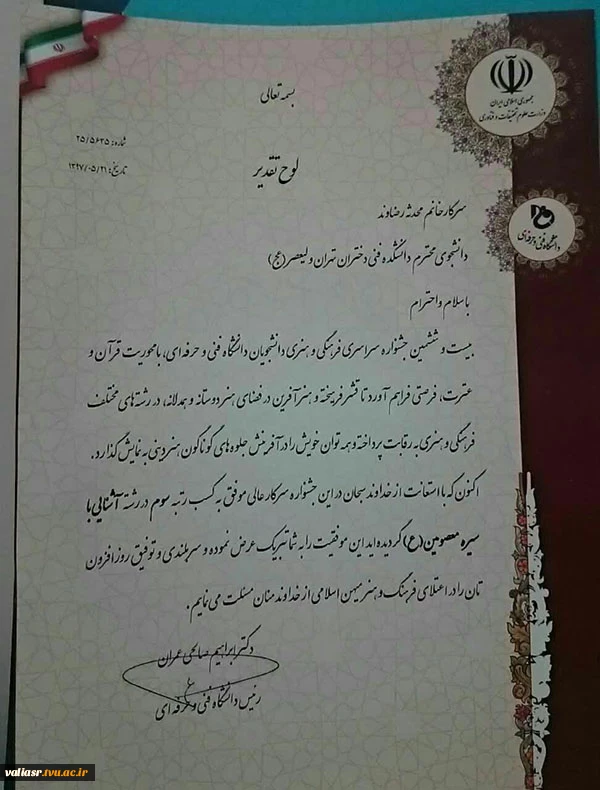 جمهوری اسلامی ایران
وزارت علوم تحقیقات و فناوری
دانشگاه فنی و حرفه‌ای
بسمه تعالی
شماره: ۲۵/۵۶۳۵
تاریخ: ۱۳۹۷/۰۵/۲۱
لوح تقدیر
سرکار خانم محدثه رضاوند
دانشجوی محترم دانشکده فنی دختران تهران ولیعصر (عج)
با سلام و احترام
بیست و ششمین جشنواره سراسری فرهنگی و هنری دانشجویان دانشگاه فنی و حرفه ای، با محوریت قرآن و
عترت، فرصتی فراهم آورد تا قشر فرهیخته و هنرآفرین در فضای هنر دوستانه و همدلانه، در رشته های مختلف
فرهنگی و هنری به رقابت پرداخته و همه توان خویش را در آفرینش جلوه های گوناگون هنر دینی به نمایش گذارد.
اکنون که با استعانت از خداوند سبحان در این جشنواره سرکار عالی موفق به کسب رتبه سوم در رشته آشنایی با
سیره معصومین (ع) گردیده اید این موفقیت را به شما تبریک عرض نموده و سربلندی و توفیق روز افزون
تان را در اعتلای فرهنگ و هنر میهن اسلامی از خداوند منان مسئلت می نمایم.
دکتر ابراهیم صالحی عمران
رئیس دانشگاه فنی و حرفه ای
valiasr.tvu.ac.ir